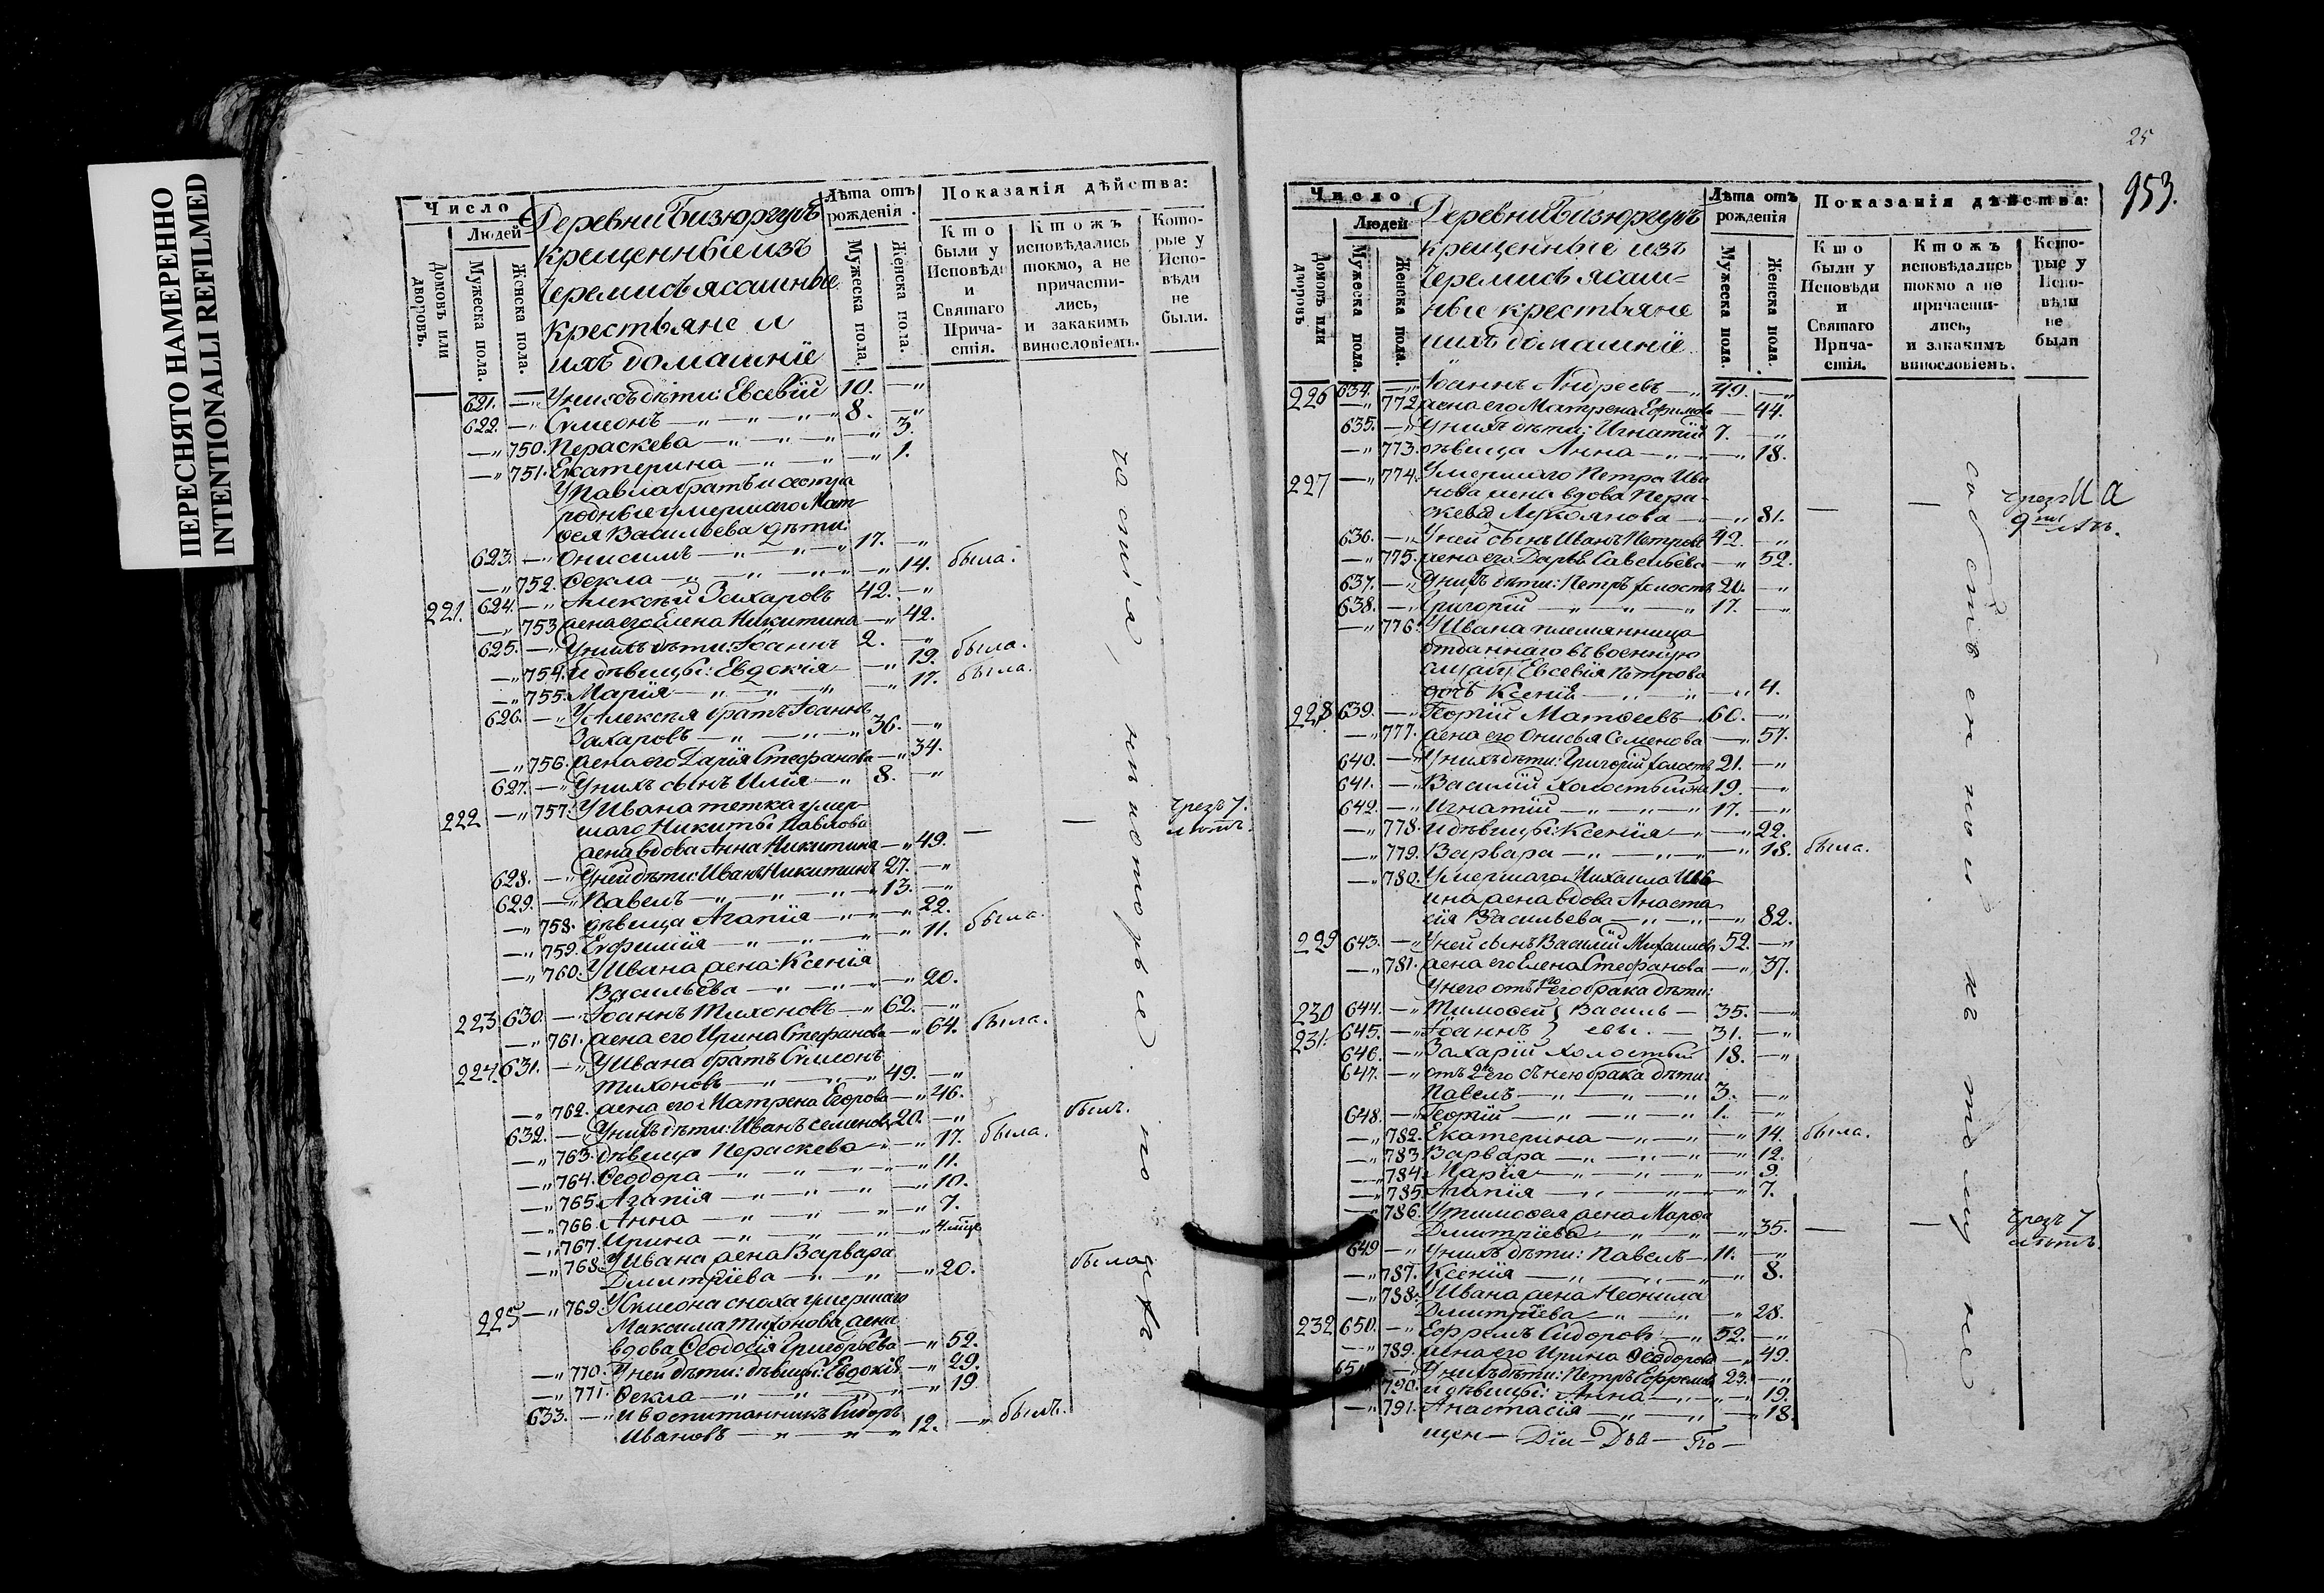 ПЕРЕСНЯТО НАМЕРЕННО
INTENTIONALLI REFILMED
Число
Людей
Домовъ или дворовъ.
Мужеска пола.
Женска пола.
Деревни Бизюргупъ
крещенные изъ
Черемисъ ясашные
Крестьяне и
ихъ домашніе
Лѣта отъ рожденія.
Мужеска пола.
Женска пола.
Показанія дѣйства:
Кто были у Исповѣди и Святаго Причастія.
Ктожъ исповѣдались токмо, а не причастились, и закакимъ винословіемъ.
Которые у Исповѣди не были.
621. —„ У нихъ дѣти: Евсевій 10. —„
622. —„ Симеонъ —„ —„ —„ 8. —„
—„ 750. Пераскева —„ —„ —„ 3.
—„ 751. Екатерина —„ —„ —„ 1.
У Павла братъ и сестра
родные умершаго Мат-
ѳея Васильева дѣти:
623. —„ Онисимъ —„ —„ 17. —„
—„ 752. Ѳекла —„ —„ —„ —„ 14. была.
221. 624. —„ Алексѣй Захаровъ 42. —„
—„ 753. жена его Елена Никитина —„ 42.
625. —„ У нихъ дѣти: Іоаннъ 2. —„
—„ 754. и дѣвицы: Евдокія —„ 19. была.
—„ 755. Марія —„ —„ —„ —„ 17. была.
626. —„ У Алексѣя братъ Іоаннъ
Захаровъ —„ —„ 36. —„
—„ 756. жена его Дарія Стефанова —„ 34.
627. —„ У нихъ сынъ Илія —„ 8. —„
222 —„ 757. У Ивана тетка умер-
шаго Никиты Павлова
жена вдова Анна Никитина —„ 49. — — чрезъ 7. лѣтъ.
628. —„ У ней дѣти: Иванъ Никитинъ 27. —„
629. —„ Павелъ —„ —„ —„ 13. —„
—„ 758. дѣвица Агапія —„ —„ 22.
—„ 759. Евфимія —„ —„ —„ 11. была.
—„ 760. У Ивана жена: Ксенія
Васильева —„ —„ —„ 20.
223 630. —„ Іоаннъ Тихоновъ —„ 62. —„
—„ 761. жена его Ирина Стефанова —„ 64. была.
224. 631. —„ У Ивана братъ Симеонъ
Тихоновъ —„ —„ 49. —„
—„ 762. жена его Матрена Егорова —„ 46.
632. —„ У нихъ дѣти: Иванъ Семеновъ 20. —„ былъ.
—„ 763. дѣвица Пераскева —„ —„ 17. была.
—„ 764. Ѳеодора —„ —„ —„ —„ 11.
—„ 765. Агапія —„ —„ —„ —„ 10.
—„ 766. Анна —„ —„ —„ —„ 7.
—„ 767. Ирина —„ —„ —„ —„ 4 мѣсце
—„ 768. У Ивана жена Варвара
Дмитріева —„ —„ —„ 20. была
225 —„ 769. У Симеона сноха умершаго
Максима Тихонова жена
вдова Ѳеодосія Григорьева —„ 52.
—„ 770. У ней дѣти: дѣвицы: Евдокія —„ 29.
—„ 771. Ѳекла —„ —„ —„ —„ 19
633. —„ И воспитанникъ Сидоръ
Ивановъ —„ —„ —„ 12. —„ былъ.
25
953.
Число
Людей
Домовъ или дворовъ
Мужеска пола.
Женска пола.
Деревни Бизюргупъ
крещенные изъ
Черемисъ ясаш=
ные крестьяне
и ихъ домашніе.
Лѣта отъ рожденія
Мужеска пола.
Женска пола.
Показанія дѣйства:
Кто были у Исповѣди и Святаго Причастія.
Ктожъ исповѣдались токмо а не причастились, и закакимъ винословіемъ.
Которые у Исповѣди не были
226 634. —„ Іоаннъ Андреевъ —„ 49. —„
—„ 772. жена его Матрена Ефимова — 44.
635. —„ У нихъ дѣти: Игнатій 7. —„
—„ 773. дѣвица Анна —„ —„ 18.
227 —„ 774. Умершаго Петра Ива
нова жена вдова Пера-
скева —„ 81. — — чрезъ 9ть лѣтъ.
636. —„ У ней сынъ Иванъ Петровъ 42. —„
—„ 775. жена его Дарья Савельева —„ 52.
637. —„ У нихъ дѣти: Петръ холостъ 20. —„
638. —„ Григорій —„ —„ —„ 17. —„
—„ 776. У Ивана племянница
отданнаго въ военную
службу Евсевія Петрова
дочь Ксенія —„ —„ —„ 4.
228 639. —„ Георгій Матѳеевъ —„ 60. —„
—„ 777. жена его Онисья Семенова —„ 57.
640. —„ У нихъ дѣти: Григорій холостъ 21. —„
641. —„ Василій холостый 19. —„
642. —„ Игнатій —„ —„ —„ 17. —„
—„ 778. и дѣвицы: Ксенія —„ —„ 22.
—„ 779. Варвара —„ —„ —„ 18. была.
—„ 780. Умершаго Михаила Ива
нова жена вдова Анаста
сія Васильева —„ —„ —„ 82.
229 643. —„ У ней сынъ Василій Михаиловъ 52. —„
—„ 781. жена его Елена Стефанова —„ 37.
У него отъ 1го его брака дѣти:
230 644. —„ Тимоѳей } Василь — 35. —„
231. 645. —„ Іоаннъ } евы. — 31. —„
646. —„ Захарій холостый 18. —„
647. —„ отъ 2го его съ нею брака дѣти:
Павелъ —„ —„ —„ 3. —„
648. —„ Георгій —„ —„ —„ 1. —„
—„ 782. Екатерина —„ —„ —„ 14. была.
—„ 783. Варвара —„ —„ —„ 12.
—„ 784. Марія —„ —„ —„ 9.
—„ 785. Агапія —„ —„ —„ 7.
—„ 786. У Тимоѳея жена Марѳа
Дмитріева —„ —„ —„ 35. — — чрезъ 7 лѣтъ.
649 —„ У нихъ дѣти: Павелъ —„ 11. —„
—„ 787. Ксенія —„ —„ —„ 8.
—„ 788. У Ивана жена Неонила
Дмитріева —„ —„ —„ 28.
232 650. —„ Ефремъ Сидоровъ —„ 52. —„
—„ 789. жена его Ирина Ѳеодорова —„ 49.
651 —„ У нихъ дѣти: Петръ Ефремовъ 23. —„
790. и дѣвицы: Анна —„ —„ 19.
—„ 791. Анастасія —„ —„ —„ 18.